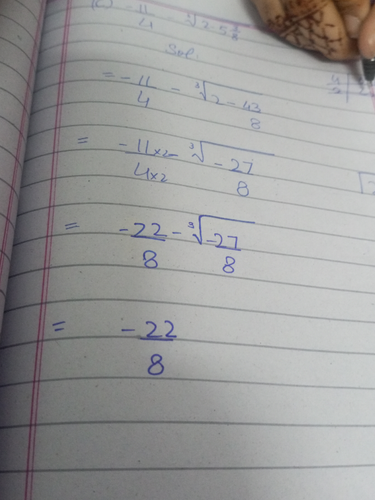 (c) -11/4 - ∛2-5 3/8
Sol.
= -11/4 - ∛2 - 43/8
= -11×2/4×2 - ∛-27/8
= -22/8 - ∛-27/8
= -22/8